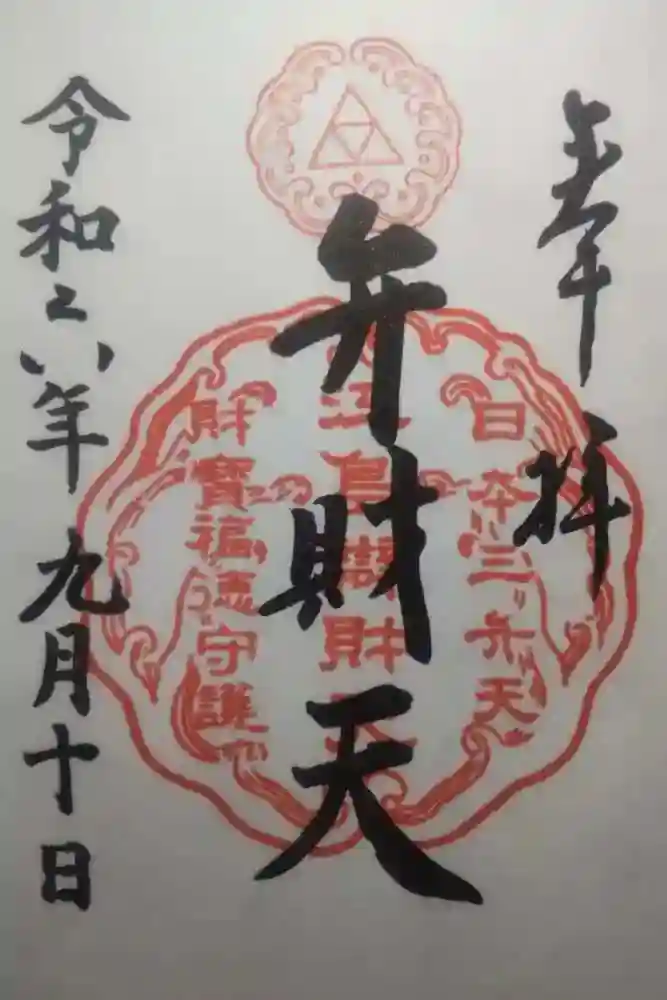 奉拝
日本三弁天
弁財天
江島財天
財寶福徳守護
令和六年九月十日